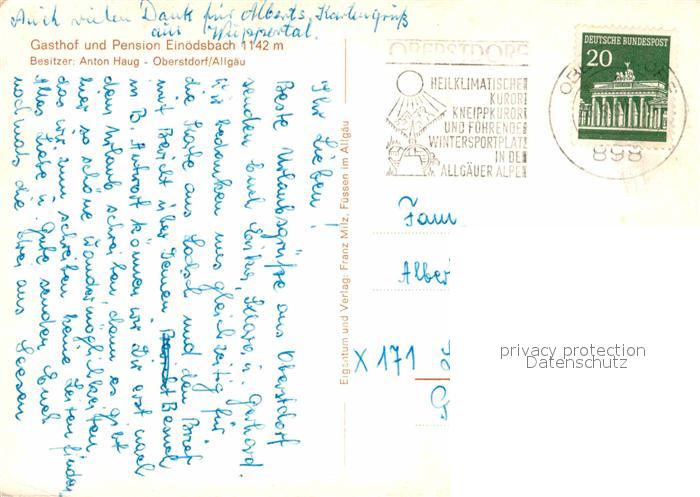 Auch vielen Dank für Alberts Kartengruß
aus Wuppertal.
Gasthof und Pension Einödsbach 1142 m
Besitzer: Anton Haug - Oberstdorf/Allgäu
Ihr Lieben!
Beste Urlaubsgrüße aus Oberstdorf
senden Euch Erika, Klara u. Gerhard.
Wir bedanken uns gleichzeitig für
die Karte aus und den Brief
mit Bericht über Deinen Besuch
in B. Antwort können wir Dir erst nach
dem Urlaub schreiben, denn es gibt
hier so schöne Wandermöglichkeiten
das wir zum schreiben keine Zeiten finden
Alles Liebe u. Gute senden Euch
nochmals die Drei aus Seesen
Eigentum und Verlag: Franz Milz, Füssen im Allgäu
OBERSTDORF
HEILKLIMATISCHER
KURORT
KNEIPPKURORT
UND FÜHRENDER
WINTERSPORTPLATZ
IN DEN
ALLGÄUER ALPEN
DEUTSCHE BUNDESPOST
20
898
Fam
Alber
X 171
privacy protection
Datenschutz